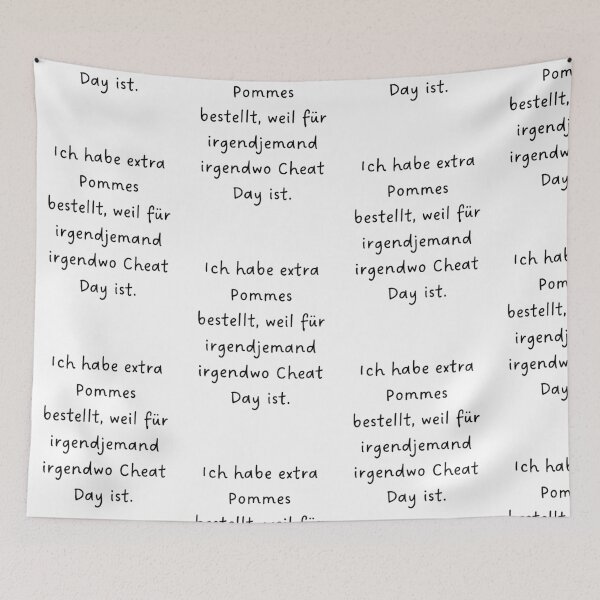 Day ist.
Ich habe extra
Pommes
bestellt, weil für
irgendjemand
irgendwo Cheat
Day ist.
Ich habe extra
Pommes
bestellt, weil für
irgendjemand
irgendwo Cheat
Day ist.
Pommes
bestellt, weil für
irgendjemand
irgendwo Cheat
Day ist.
Ich habe extra
Pommes
bestellt, weil für
irgendjemand
irgendwo Cheat
Day ist.
Ich habe extra
Pommes
Day ist.
Ich habe extra
Pommes
bestellt, weil für
irgendjemand
irgendwo Cheat
Day ist.
Ich habe extra
Pommes
bestellt, weil für
irgendjemand
irgendwo Cheat
Day ist.
Pom
bestellt,
irgendj
irgendw
Day
Ich hab
Pom
bestellt,
irgendj
irgendw
Day
Ich hab
Pom